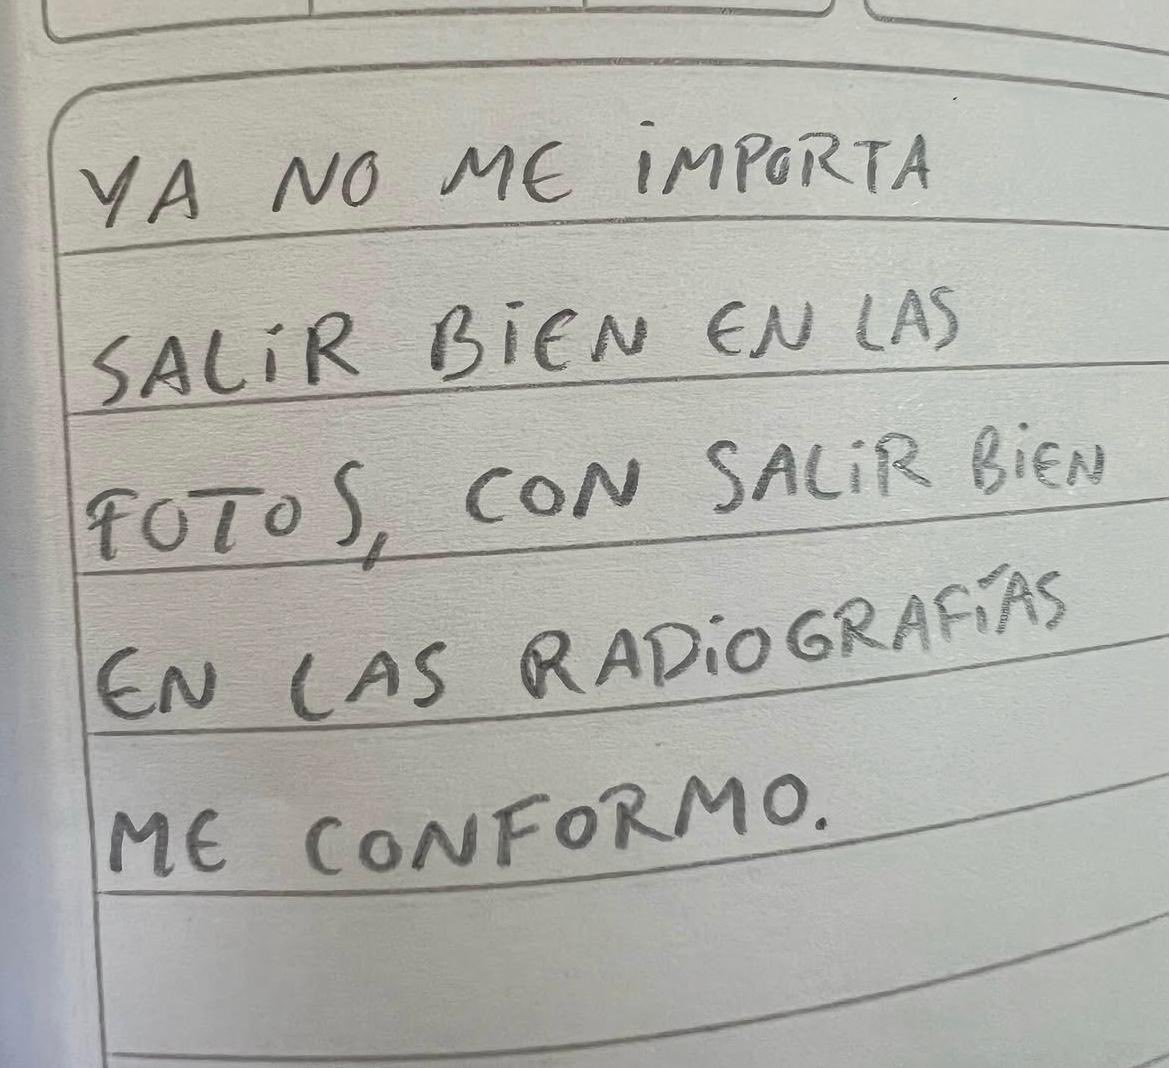 YA NO ME IMPORTA
SALIR BIEN EN LAS
FOTOS, CON SALIR BIEN
EN LAS RADIOGRAFÍAS
ME CONFORMO.